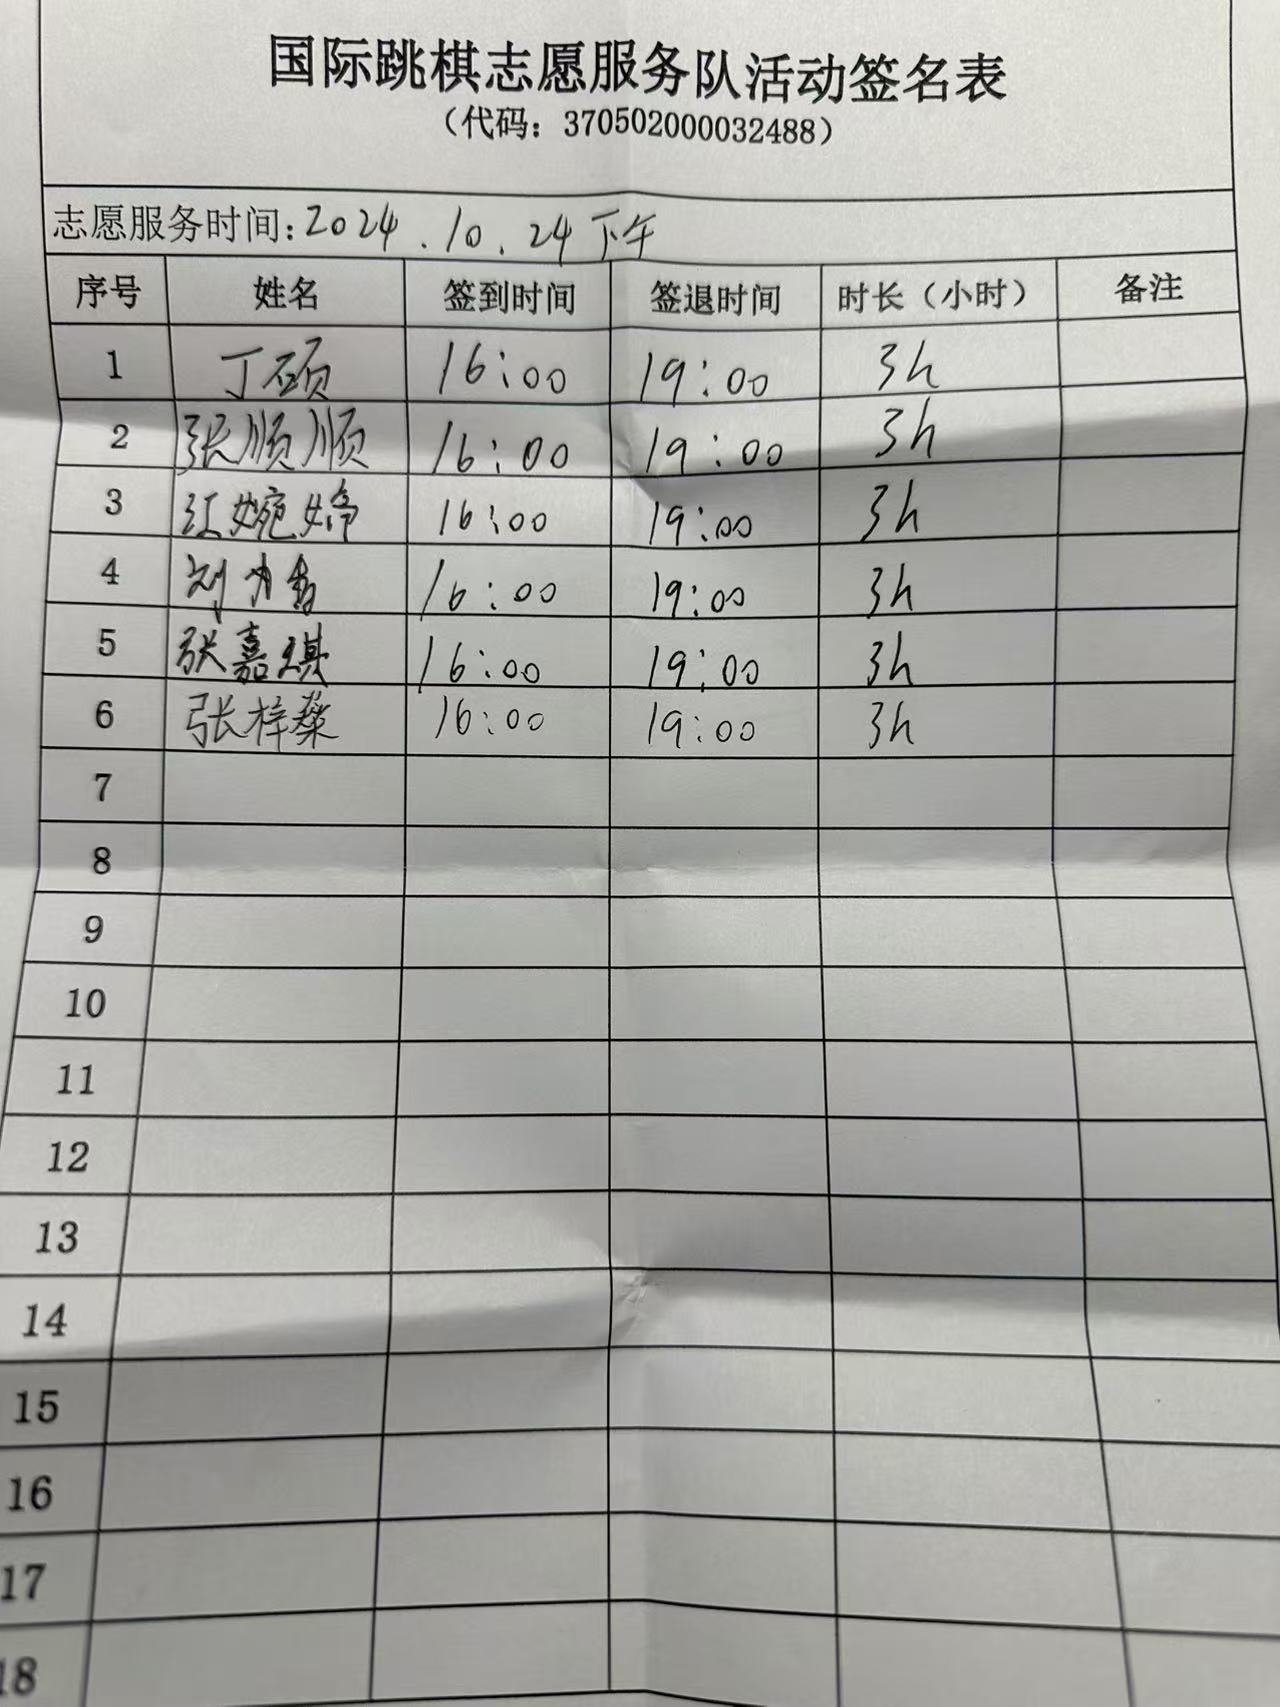 国际跳棋志愿服务队活动签名表
（代码：370502000032488）
志愿服务时间：2024.10.24下午
序号 姓名 签到时间 签退时间 时长（小时） 备注
1 丁硕 16:00 19:00 3h
2 张顺顺 16:00 19:00 3h
3 江婉婷 16:00 19:00 3h
4 刘 16:00 19:00 3h
5 张嘉琪 16:00 19:00 3h
6 张梓桑 16:00 19:00 3h
7
8
9
10
11
12
13
14
15
16
17
18